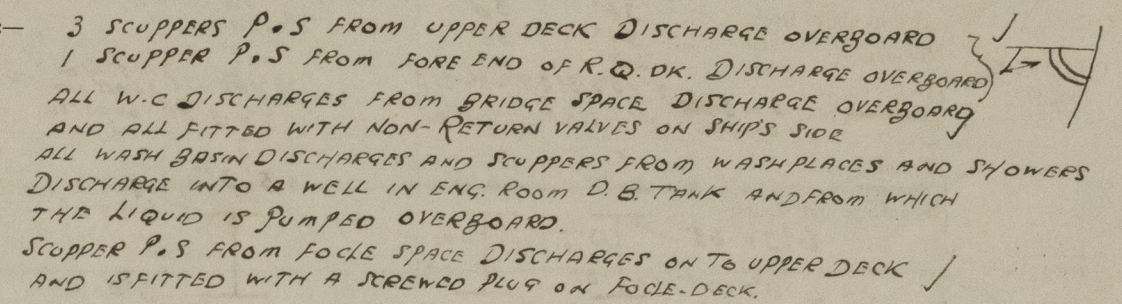 3 SCUPPERS P.S FROM UPPER DECK DISCHARGE OVERBOARD
1 SCUPPER P.S FROM FORE END OF R.Q.DK. DISCHARGE OVERBOARD
ALL W.C DISCHARGES FROM BRIDGE SPACE DISCHARGE OVERBOARD
AND ALL FITTED WITH NON-RETURN VALVES ON SHIP'S SIDE
ALL WASH BASIN DISCHARGES AND SCUPPERS FROM WASHPLACES AND SHOWERS
DISCHARGE INTO A WELL IN ENG. ROOM D.B. TANK AND FROM WHICH
THE LIQUID IS PUMPED OVERBOARD.
SCUPPER P.S FROM FOCLE SPACE DISCHARGES ON TO UPPER DECK
AND IS FITTED WITH A SCREWED PLUG ON FOCLE-DECK.